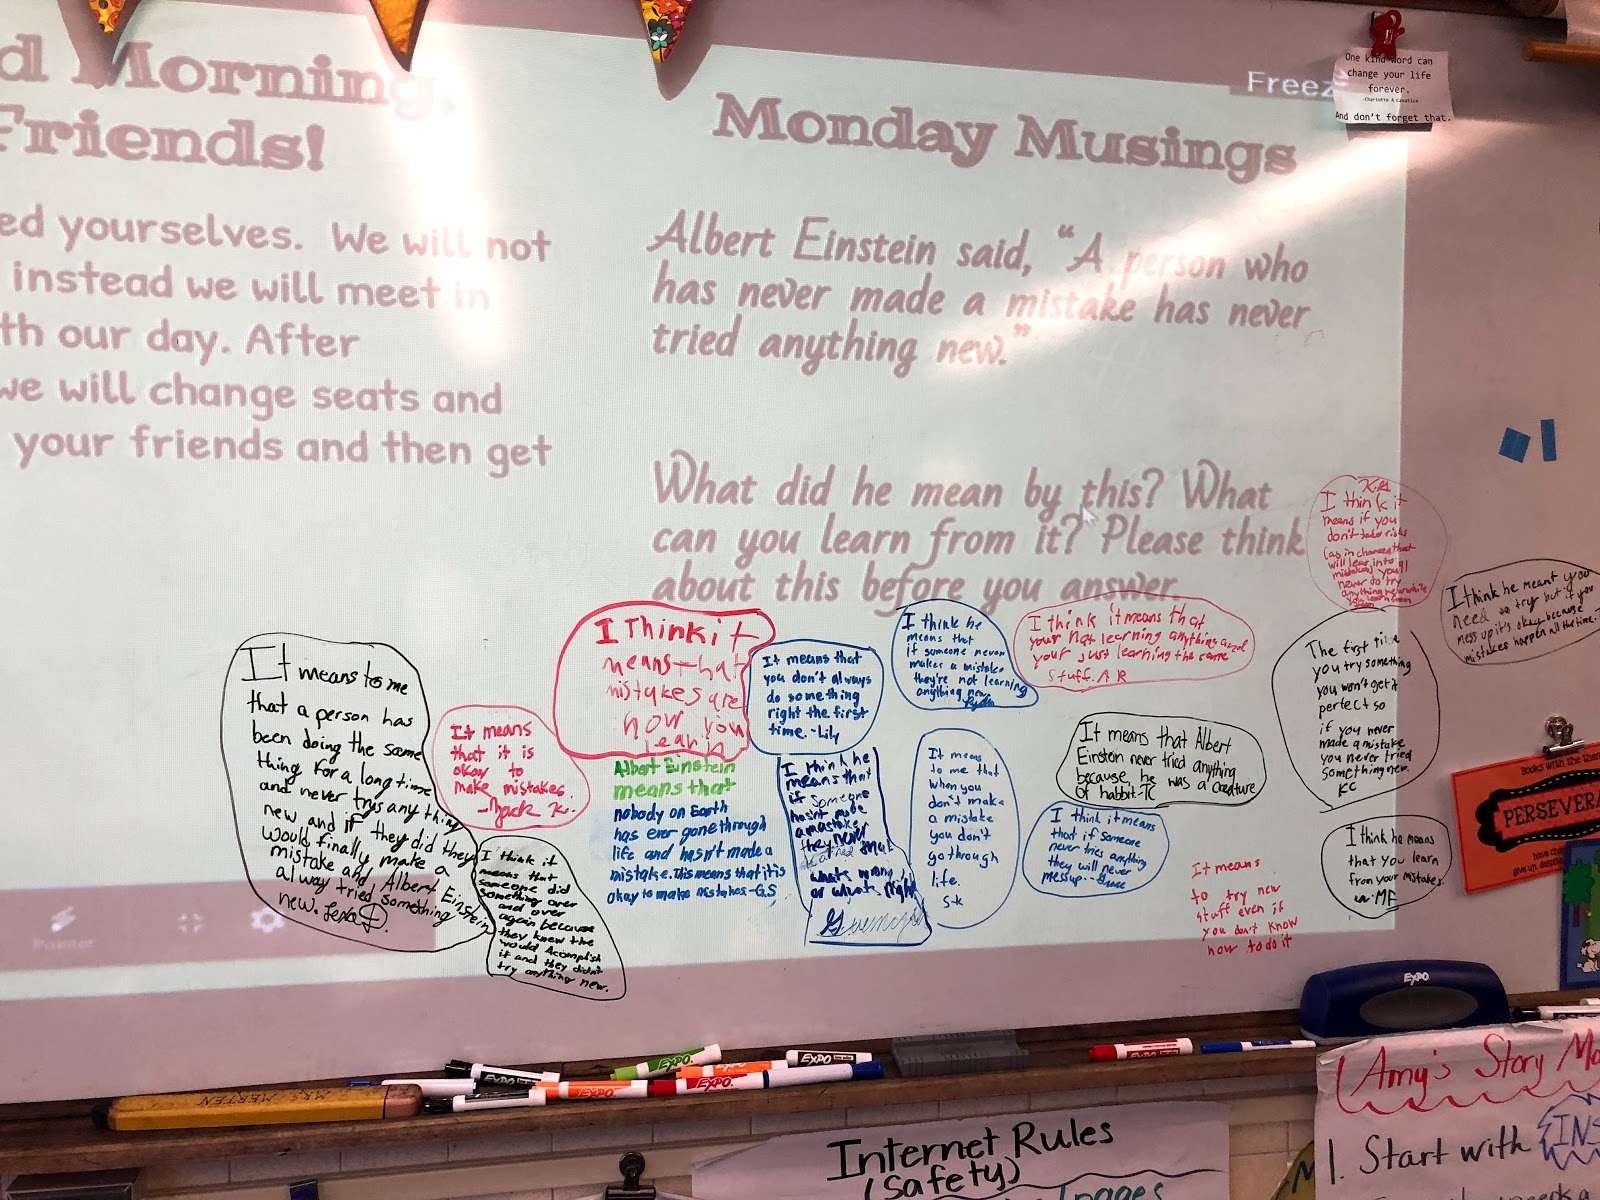 d Morning,
Friends!
ed yourselves. We will not
instead we will meet in
th our day. After
we will change seats and
your friends and then get
Monday Musings
Albert Einstein said, “A person who
has never made a mistake has never
tried anything new.”
What did he mean by this? What
can you learn from it? Please think
about this before you answer.
Freeze
One kind word can
change your life
forever.
And don't forget that.
It means to me
that a person has
been doing the same
thing for a long time
and never trys any thing
new and if they did they
would finally make a
mistake and Albert Einstein
alway tried something
new.
It means
that it is
okay to
make mistakes.
-Zack K.
I think it
means that
someone did
something over
and over
again because
they knew the
would Acomplish
it and they didn't
try anything new.
I Think it
means that
mistakes are
how you
learn
Albert Einstein
means that
nobody on Earth
has ever gone through
life and hasn't made a
mistake. This means that it is
okay to make mistakes -G.S
It means that
you don't always
do something
right the first
time. -Lily
I think he
means that
if someone
hasn't made
a mastake
they never
what's wrong
or what's right
I think he
means that
if someone never
makes a mistake
they're not learning
anything new.
It means
to me that
when you
don't make
a mistake
you don't
go through
life.
S.K
I think it means that
your not learning anything and
your just learning the same
stuff. A R
It means that Albert
Einstein never tried anything
because he was a creature
of habbit-TC
I think it means
that if someone
never tries anything
they will never
mess up.
It means
to try new
stuff even if
you don't know
how to do it
I think it
means if you
don't take risks
will lead into
never to try
The first time
you try something
you won't get it
perfect so
if you never
made a mistake
you never tried
something new.
KC
I think he means
that you learn
from your mistakes.
MF
I think he meant you
need to try but if you
mess up it's okay because
mistakes happen all the time.
Books with the them
PERSEVERA
EXPO
EXPO
EXPO
EXPO
EXPO
EXPO
EXPO
MRS. MERTEN
Internet Rules
(Safety)
Amy's Story Mo
1. Start with INS